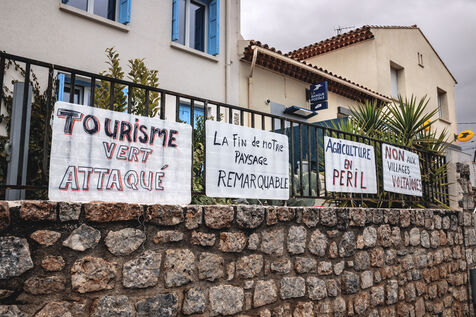 TOURISME
VERT
ATTAQUÉ
LA FIN DE NOTRE
PAYSAGE
REMARQUABLE
AGRICULTURE
EN
PÉRIL
NON AUX
VILLAGES
VOLTAÏQUES